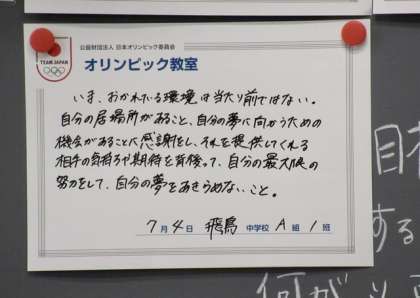 TEAM JAPAN
公益財団法人 日本オリンピック委員会
オリンピック教室
いま、おかれている環境は当たり前ではない。
自分の居場所があること、自分の夢に向かうための
機会があることに感謝をし、それを提供してくれる
相手の気持ちや期待を背負って、自分の最大限の
努力をして、自分の夢をあきらめないこと。
7月4日 飛鳥 中学校 A組 1班
する
何が